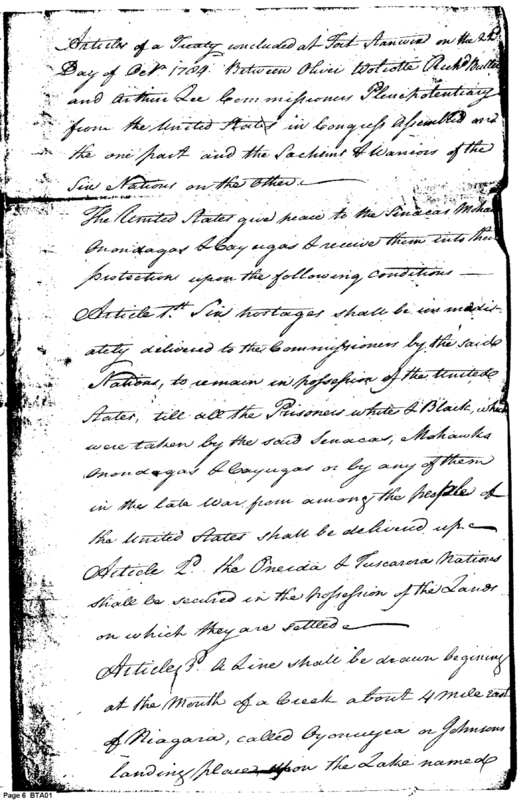 Articles of a Treaty concluded at Fort Stanwix on the 22d
Day of Octr 1784. Between Oliver Wolcotte Richd Butler
and Arthur Lee Commissioners Plenepotentiary
from the United States in Congress Assembled on
the one part and the Sachems & Warriors of the
Six Nations on the Other.
The United States give peace to the Senacas Moha
Onondagas & Cayugas & receive them into their
protection upon the following conditions —
Article 1st. Six hostages shall be immedi
ately delivered to the Commissioners by the said
Nations, to remain in possession of the United
States, till all the Prisoners white & Black, which
were taken by the said Senacas, Mohawks
Onondagas & Cayugas or by any of them
in the late War from among the people of
the United States shall be delivered up.
Article 2d. the Oneida & Tuscarora Nations
shall be secured in the Possession of the Lands
on which they are settled
Article 3d. A Line shall be drawn begining
at the Mouth of a Creek about 4 mile east
of Niagara, called Oyonuyea or Johnsons
landing place upon the Lake named
Page 6 BTA01